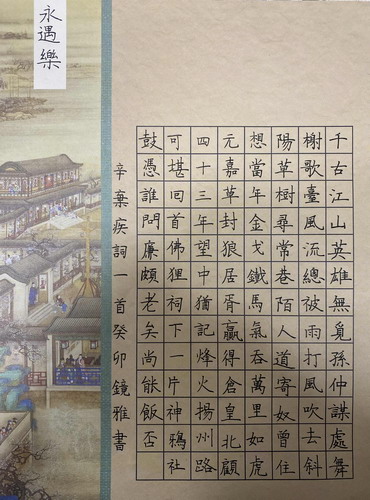 永遇樂
千古江山英雄無覓孫仲謀處舞
榭歌臺風流總被雨打風吹去斜
陽草樹尋常巷陌人道寄奴曾住
想當年金戈鐵馬氣吞萬里如虎
元嘉草封狼居胥贏得倉皇北顧
四十三年望中猶記烽火揚州路
可堪回首佛狸祠下一片神鴉社
鼓憑誰問廉頗老矣尚能飯否
辛棄疾詞一首癸卯鏡雅書